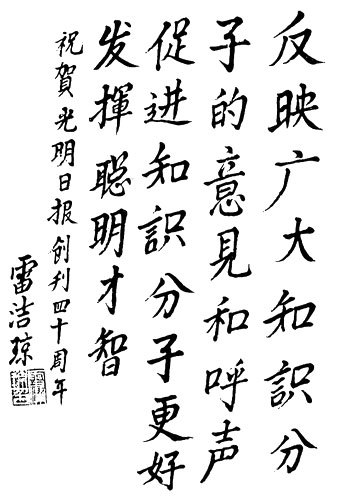 反映广大知識分
子的意見和呼声
促进知識分子更好
发揮聪明才智
祝賀光明日报创刊四十周年
雷洁琼